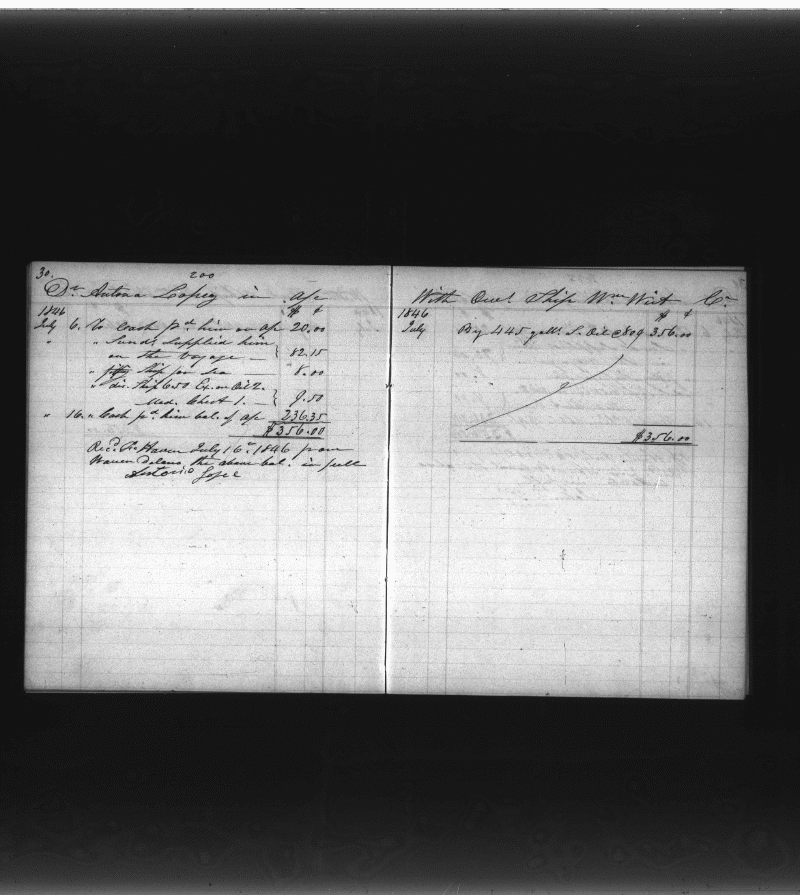 30.
200
Dr. Antona Lopez in a/c
1846 $ ¢
July 6. To Cash pd. him on a/c 20.00
" " Sunds. Supplied him
on the voyage — } 82.15
" ship for sea — 8.00
" " dis. Ship 6.50 Ex. on Oil 2.
Med. Chest 1. — } 9.50
" 16. " Cash pd. him bal. of a/c 236.35
$356.00
Recd. Fr. Haven July 16th. 1846 from
Warren Delano the above bal. in full
Antonio Lopez
With Ship Wm. Wirt Cr.
1846 $ ¢
July By 445 galls. S. Oil @ 80¢ 356.00
$356.00